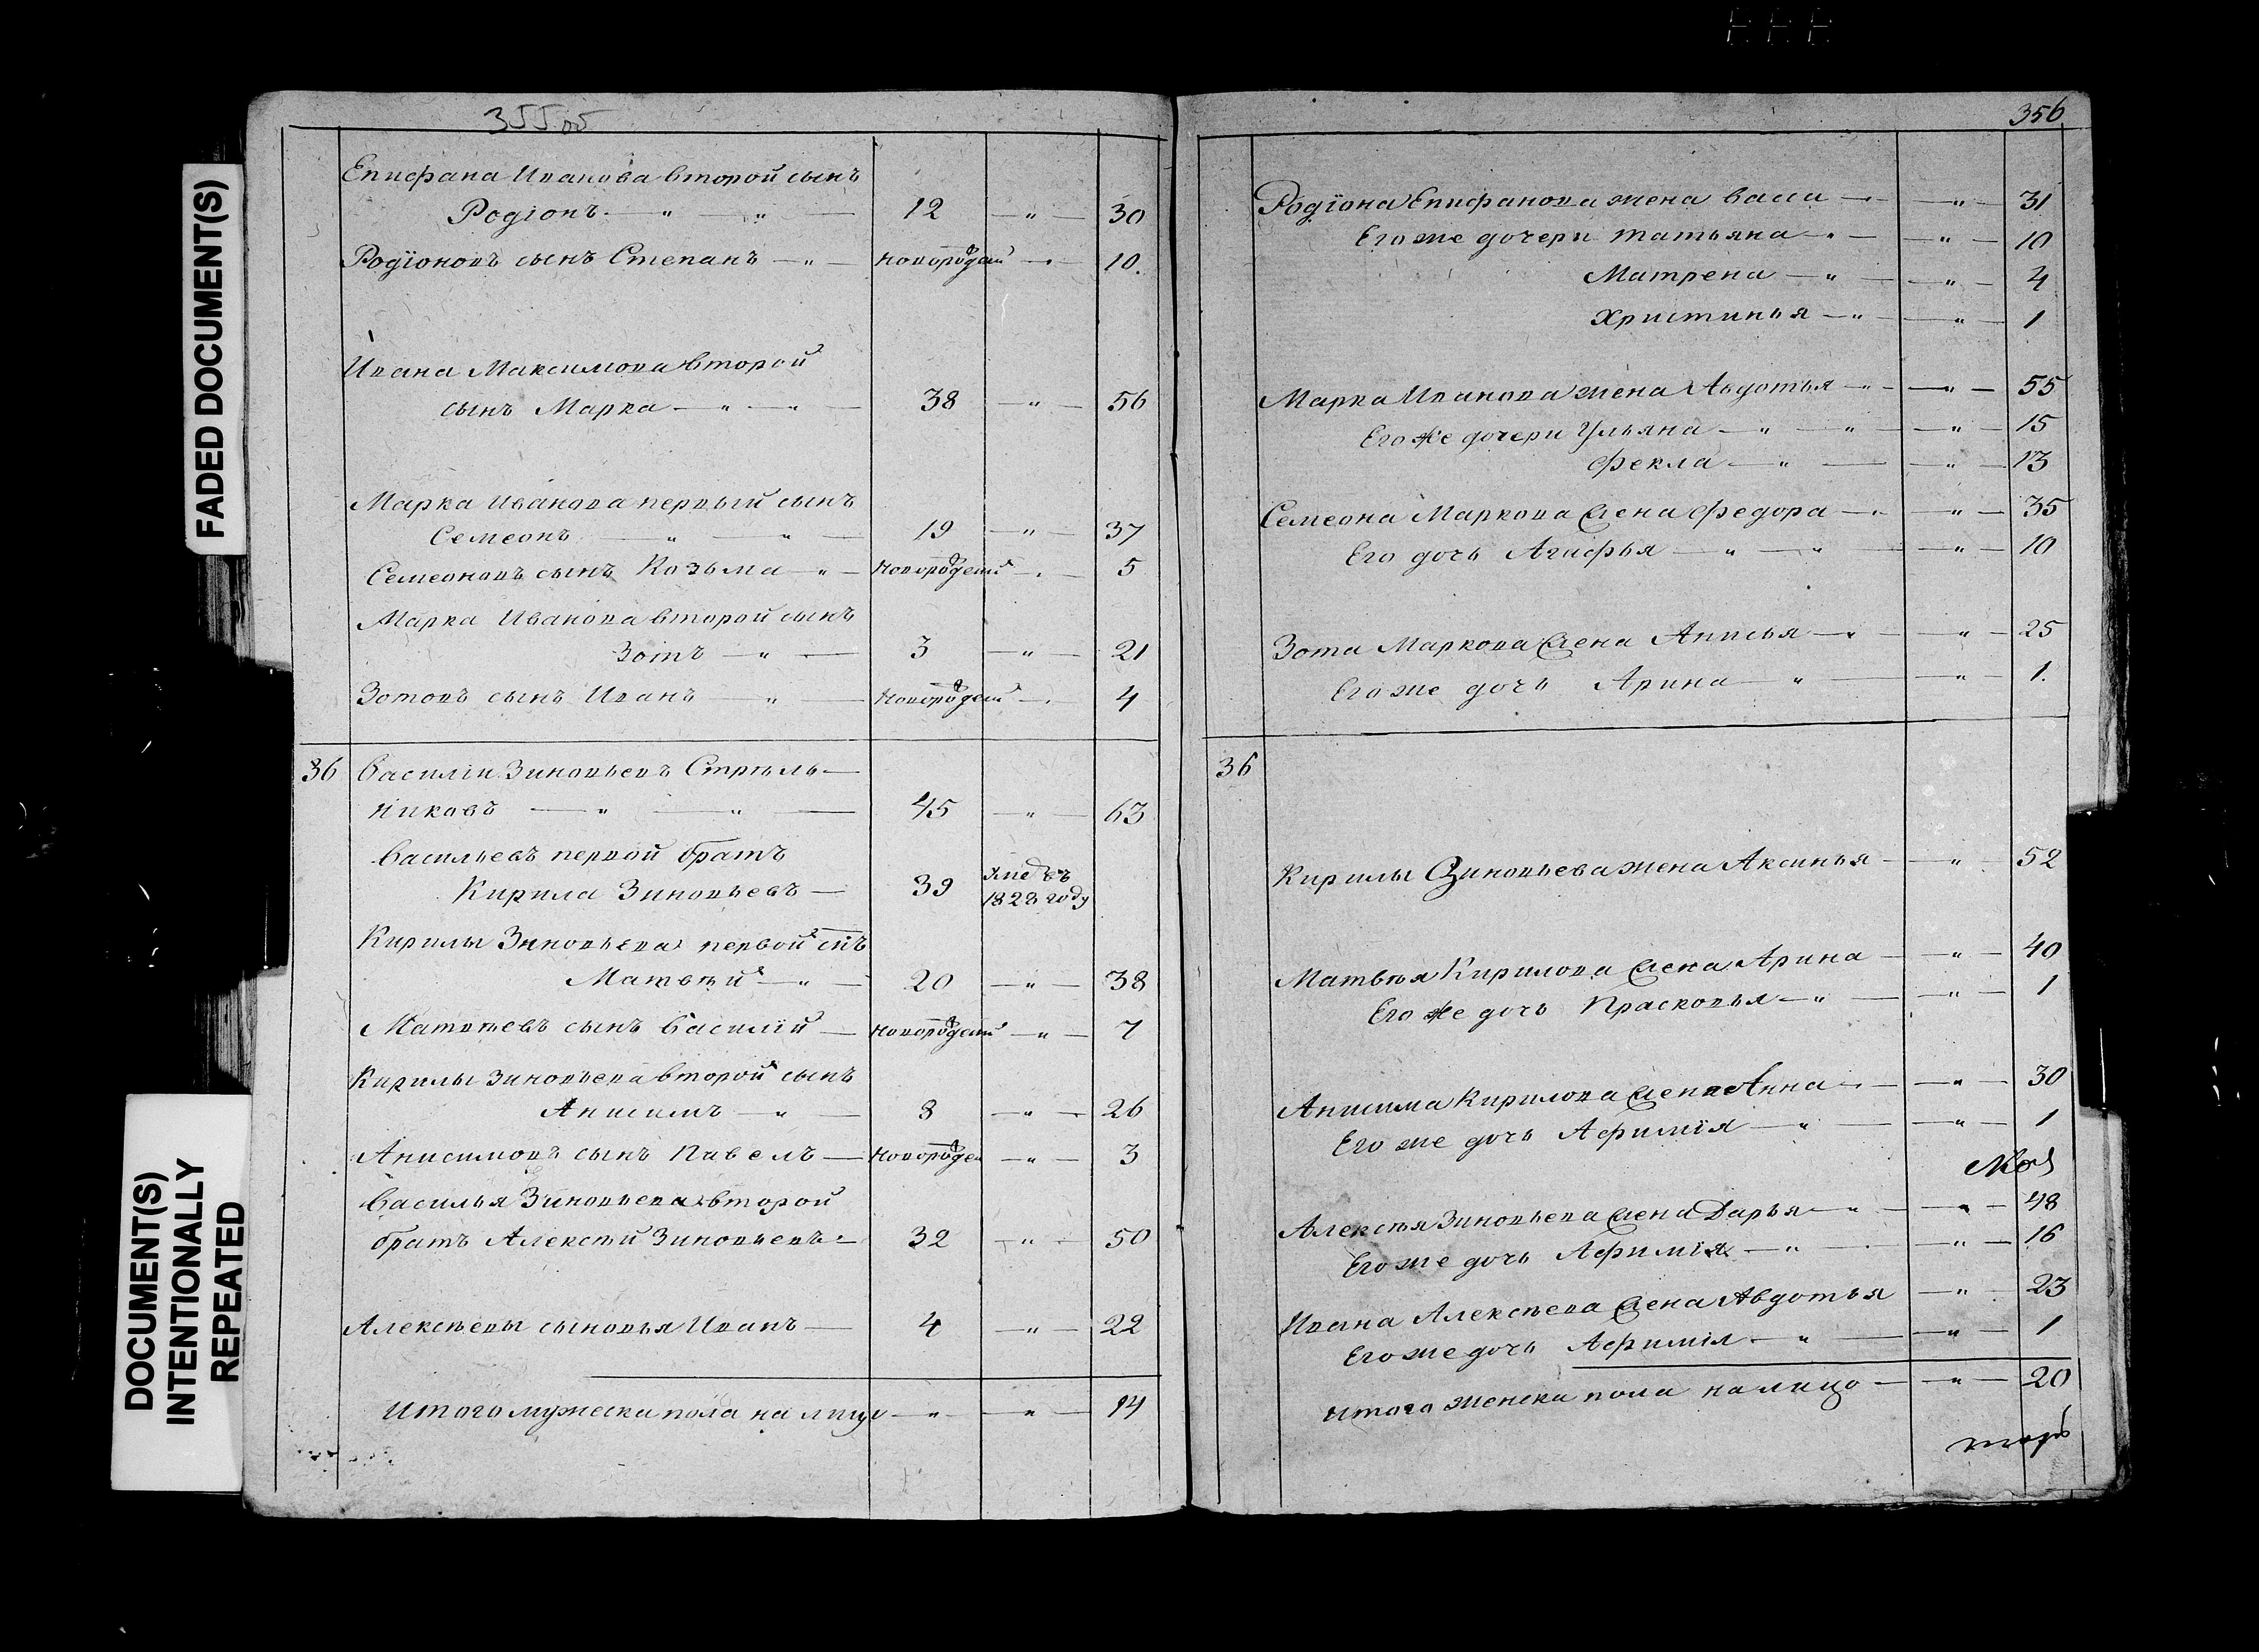 355 об
Епифана Иванова второй сынъ
Родіонъ — " — " — 12 — " — 30
Родіоновъ сынъ Степанъ — " — новорожденный — " — 10.
Ивана Максимова второй
сынъ Марка — " — " — 38 — " — 56
Марка Иванова первый сынъ
Семеонъ — " — " — 19 — " — 37
Семеоновъ сынъ Козьма — " — новорожденный — " — 5
Марка Иванова второй сынъ
Зотъ — " — 3 — " — 21
Зотовъ сынъ Иванъ — " — новорожденный — " — 4
36 Василій Зиновьевъ Стрѣль—
никовъ — " — " — 45 — " — 63
Васильевъ первой братъ
Кирила Зиновьевъ — 39 умре въ
1828 году
Кирилы Зиновьева первой снъ
Матвѣй — " — 20 — " — 38
Матвѣевъ сынъ Василій — новорожденный — " — 7
Кирилы Зиновьева второй сынъ
Анисимъ — " — 8 — " — 26
Анисимовъ сынъ Павелъ — новорожден — " — 3
Василья Зиновьева второй
братъ Алексѣй Зиновьевъ — 32 — " — 50
Алексѣевы сыновья Иванъ — 4 — " — 22
Итого мужеска пола на лицо — " — " — 14
356
Родіона Епифанова жена Васса — " — " — 31
Его же дочери Татьяна — " — " — 10
Матрена — " — " — 4
Христинья — " — " — 1
Марка Иванова жена Авдотья — " — " — 55
Его же дочери Ульяна — " — " — " — 15
Фекла — " — " — 13
Семеона Маркова жена Федора — " — " — 35
Его дочь Агафья — " — " — " — 10
Зота Маркова жена Анисья — " — " — 25
Его же дочь Арина — " — " — 1.
36
Кирилы Зиновьева жена Аксинья — " — 52
Матвѣя Кирилова жена Арина — " — 40
Его же дочь Прасковья — " — " — 1
Анисима Кирилова жена Анна — " — " — 30
Его же дочь Афимія — " — " — 1
Алексѣя Зиновьева жена Дарья — " — " — 48
Его же дочь Афимія — " — " — 16
Ивана Алексѣева жена Авдотья — " — 23
Его же дочь Афимія — " — " — 1
Итого женска пола на лицо — " — 20
FADED DOCUMENT(S)
DOCUMENT(S)
INTENTIONALLY
REPEATED